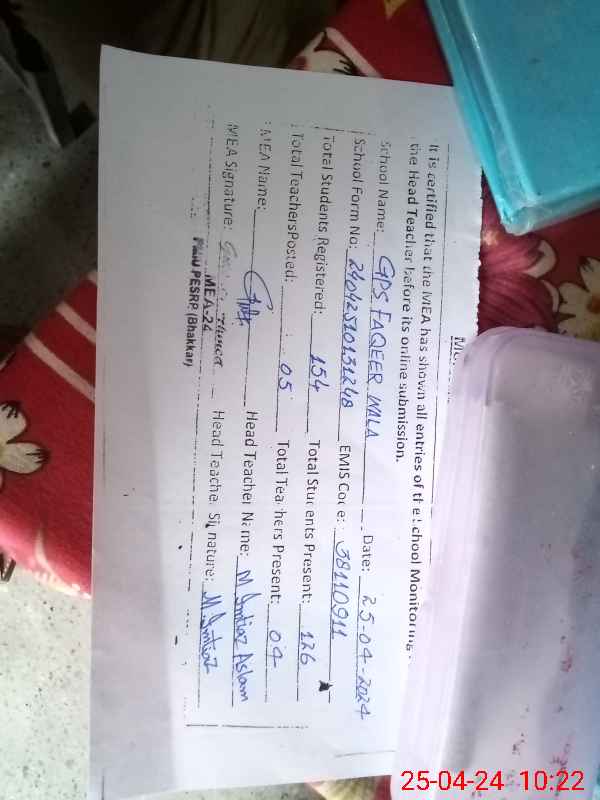 It is certified that the MEA has shown all entries of the School Monitoring
the Head Teacher before its online submission.
School Name: GPS FAQEER WALA Date: 25-04-2024
School Form No: 24042510131248 EMIS Code: 38110911
Total Students Registered: 154 Total Students Present: 126
Total TeachersPosted: 05 Total Teachers Present: 04
MEA Name: Head Teacher Name: M Imtiaz Aslam
MEA Signature: Head Teacher Signature: M. Imtiaz
MEA-24
PMIU PESRP (Bhakkar)
25-04-24 10:22